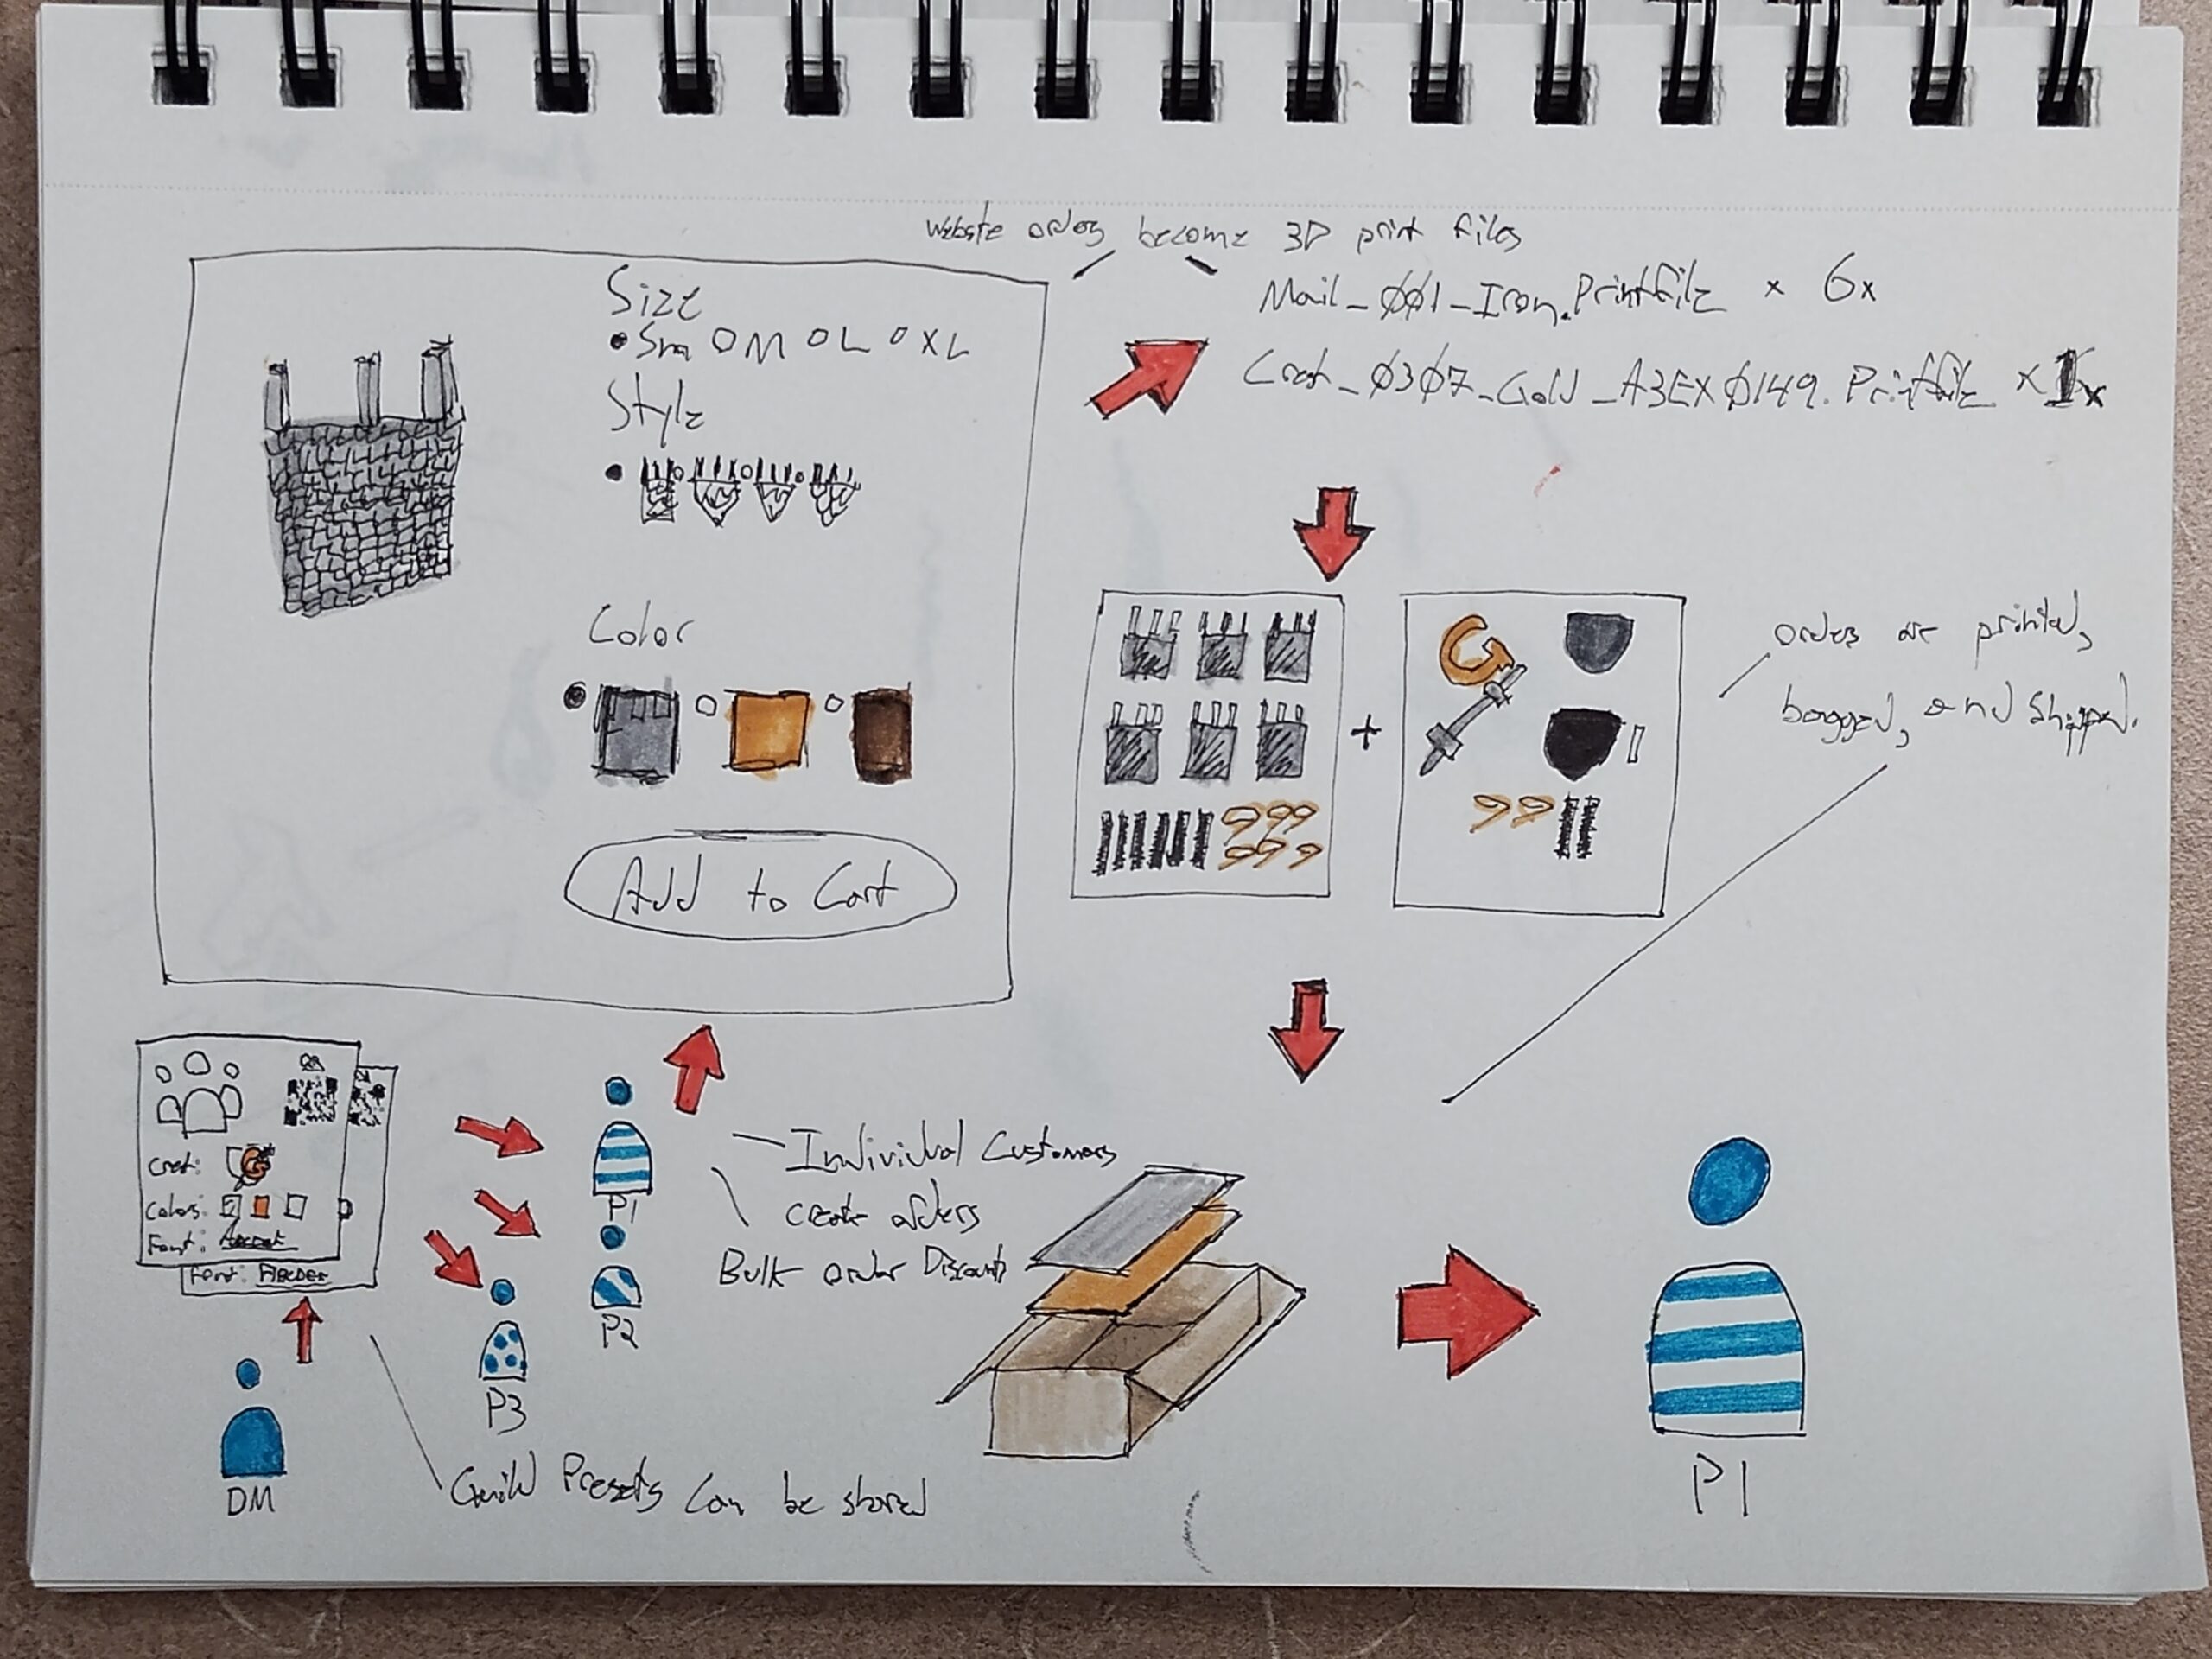 Website orders become 3D print files
Size
Sm M L XL
Style
Color
Add to Cart
Mail_001_Iron.Printfile x 6x
Crest_0307_Gold_A3EX0149.Printfile x 1x
Orders are printed,
bagged, and shipped.
Crest:
Colors:
Font:
Font:
DM
P1
P2
P3
Individual Customers
create orders
Bulk order Discounts
Guild Presets can be shared
P1